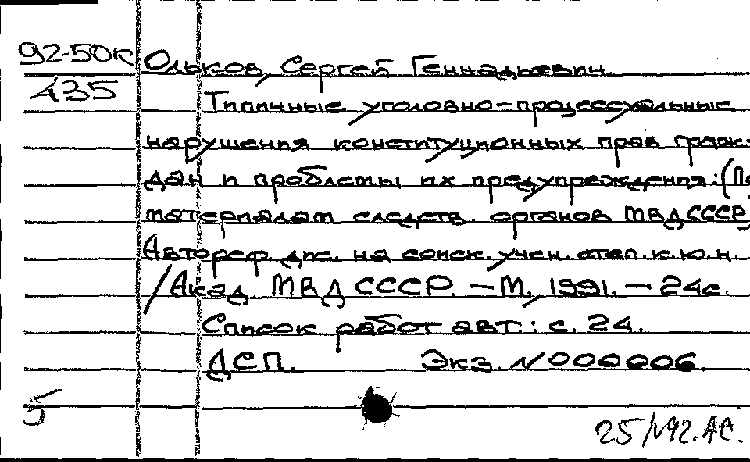 92-50К Ольков, Сергей Геннадьевич.
435 Типичные уголовно-процессуальные
нарушения конституционных прав граж-
дан и проблемы их предупреждения: (По
материалам следств. органов МВД СССР)
Автореф. дис. на соиск. учен. степ. к.ю.н.
/Акад. МВД СССР. – М., 1991. – 24с.
Список работ авт.: с. 24.
ДСП. Экз. N 000006.
5